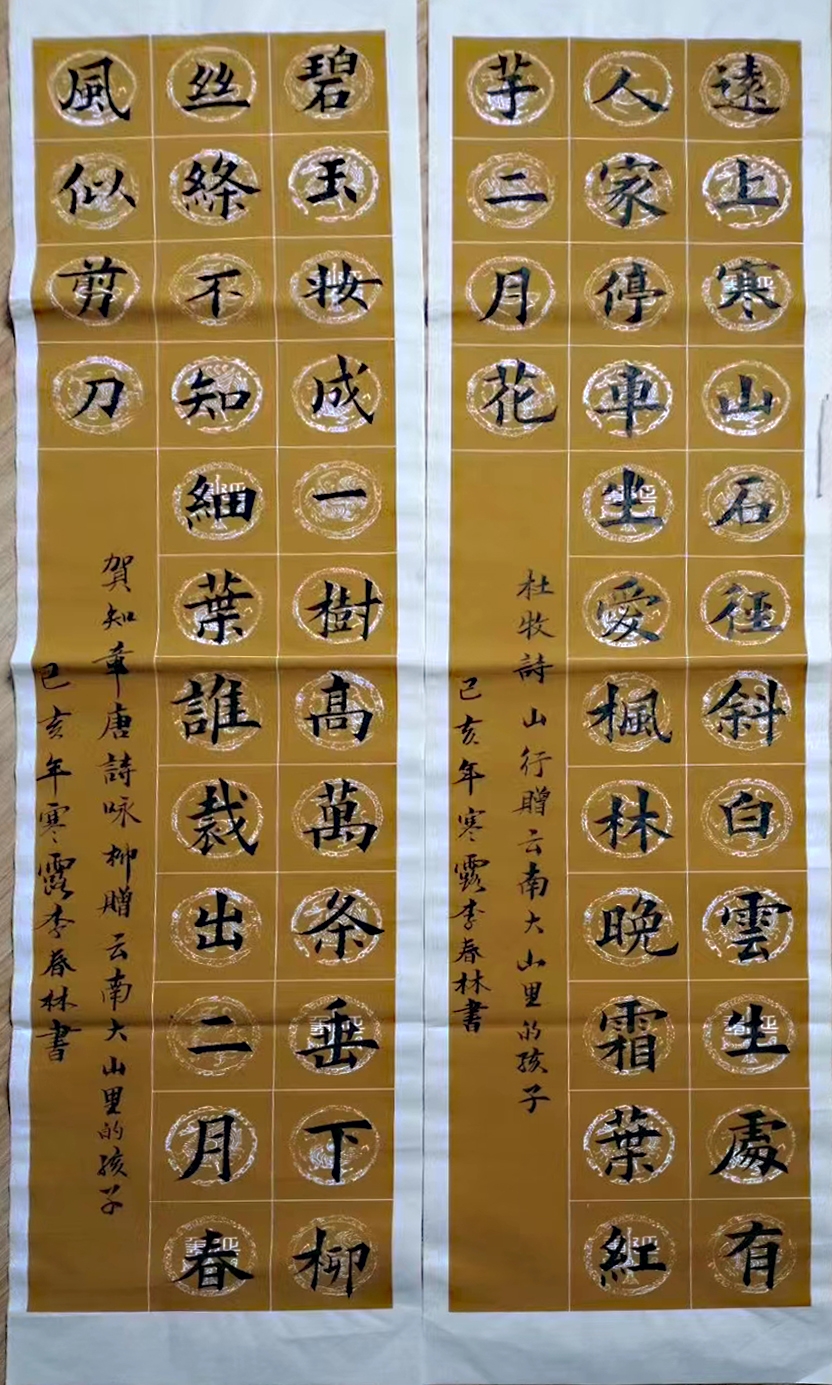 遠上寒山石徑斜白雲生處有
人家停車坐愛楓林晚霜葉紅
芋二月花
杜牧詩山行贈云南大山里的孩子
己亥年寒露李春林書
碧玉妆成一樹高萬条垂下柳
丝絛不知細葉誰裁出二月春
風似剪刀
賀知章唐詩咏柳贈云南大山里的孩子
己亥年寒露李春林書